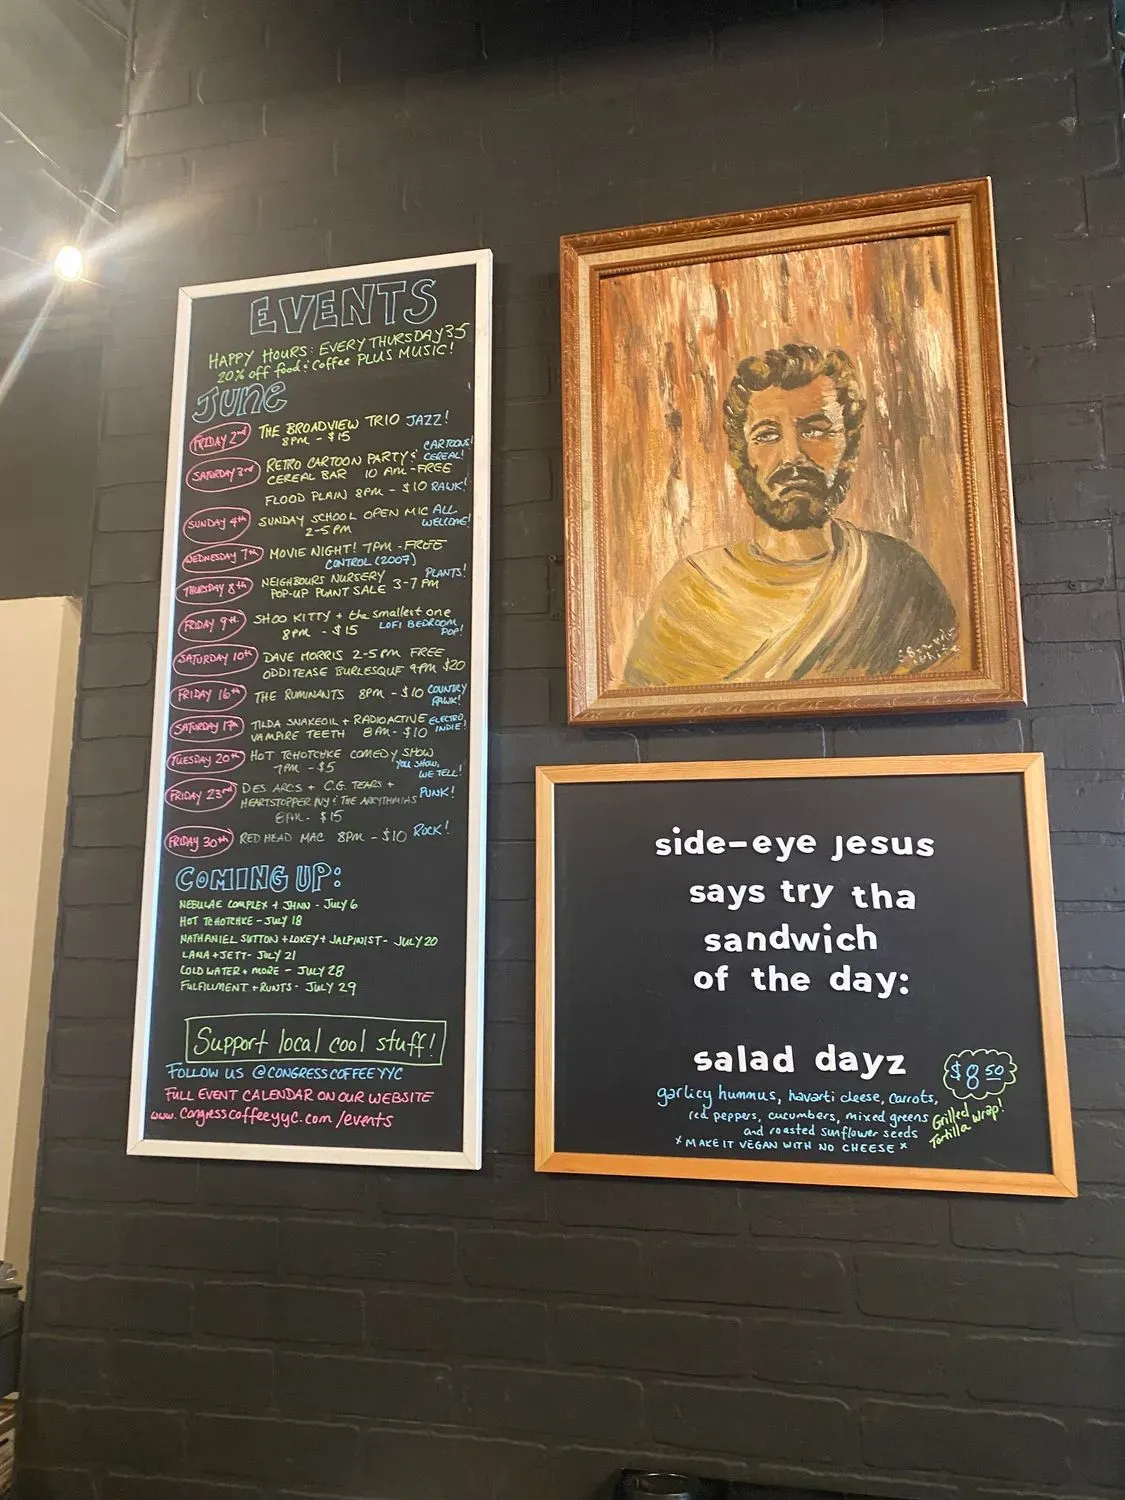 EVENTS
HAPPY HOURS: EVERY THURSDAY 3-5
20% off food & coffee PLUS MUSIC!
JUNE
FRIDAY 2nd THE BROADVIEW TRIO JAZZ!
8PM - $15
SATURDAY 3rd RETRO CARTOON PARTY & CARTOONS!
CEREAL BAR 10 AM - FREE CEREAL!
FLOOD PLAIN 8PM - $10 RAWK!
SUNDAY 4th SUNDAY SCHOOL OPEN MIC ALL
2-5 PM WELCOME!
WEDNESDAY 7th MOVIE NIGHT! 7PM - FREE
CONTROL (2007)
THURSDAY 8th NEIGHBOURS NURSERY PLANTS!
POP-UP PLANT SALE 3-7 PM
FRIDAY 9th SHOO KITTY + the smallest one
8PM - $15 LOFI BEDROOM
POP!
SATURDAY 10th DAVE MORRIS 2-5 PM FREE
ODDITEASE BURLESQUE 9PM $20
FRIDAY 16th THE RUMINANTS 8PM - $10 COUNTRY
RAWK!
SATURDAY 17th TILDA SNAKEOIL + RADIOACTIVE ELECTRO
VAMPIRE TEETH 8AM - $10 INDIE!
TUESDAY 20th HOT TCHOTCHKE COMEDY SHOW
7PM - $5 YOU SHOW,
WE TELL!
FRIDAY 23rd DES ARCS + C.G. TEARS +
HEARTSTOPPER IVY & THE ARRYTHMIAS PUNK!
8PM - $15
FRIDAY 30th RED HEAD MAC 8PM - $10 ROCK!
COMING UP:
NEBULAE COMPLEX + JHNN - JULY 6
HOT TCHOTCHKE - JULY 18
NATHANIEL SUTTON + LOKEY + JALPINIST - JULY 20
LANA + JETT - JULY 21
COLD WATER + MORE - JULY 28
FULFILLMENT + RUNTS - JULY 29
Support local cool stuff!
FOLLOW US @CONGRESSCOFFEEYYC
FULL EVENT CALENDAR ON OUR WEBSITE
www.congresscoffeeyyc.com/events
side-eye jesus
says try tha
sandwich
of the day:
salad dayz
$8.50
garlicy hummus, havarti cheese, carrots,
red peppers, cucumbers, mixed greens
and roasted sunflower seeds
* MAKE IT VEGAN WITH NO CHEESE *
Grilled
Tortilla Wrap!